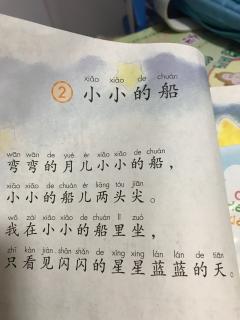 xiǎo xiǎo de chuán
② 小小的船
wān wān de yuè ér xiǎo xiǎo de chuán
弯弯的月儿小小的船，
xiǎo xiǎo de chuán ér liǎng tóu jiān
小小的船儿两头尖。
wǒ zài xiǎo xiǎo de chuán lǐ zuò
我在小小的船里坐，
zhǐ kàn jiàn shǎn shǎn de xīng xing lán lán de tiān
只看见闪闪的星星蓝蓝的天。